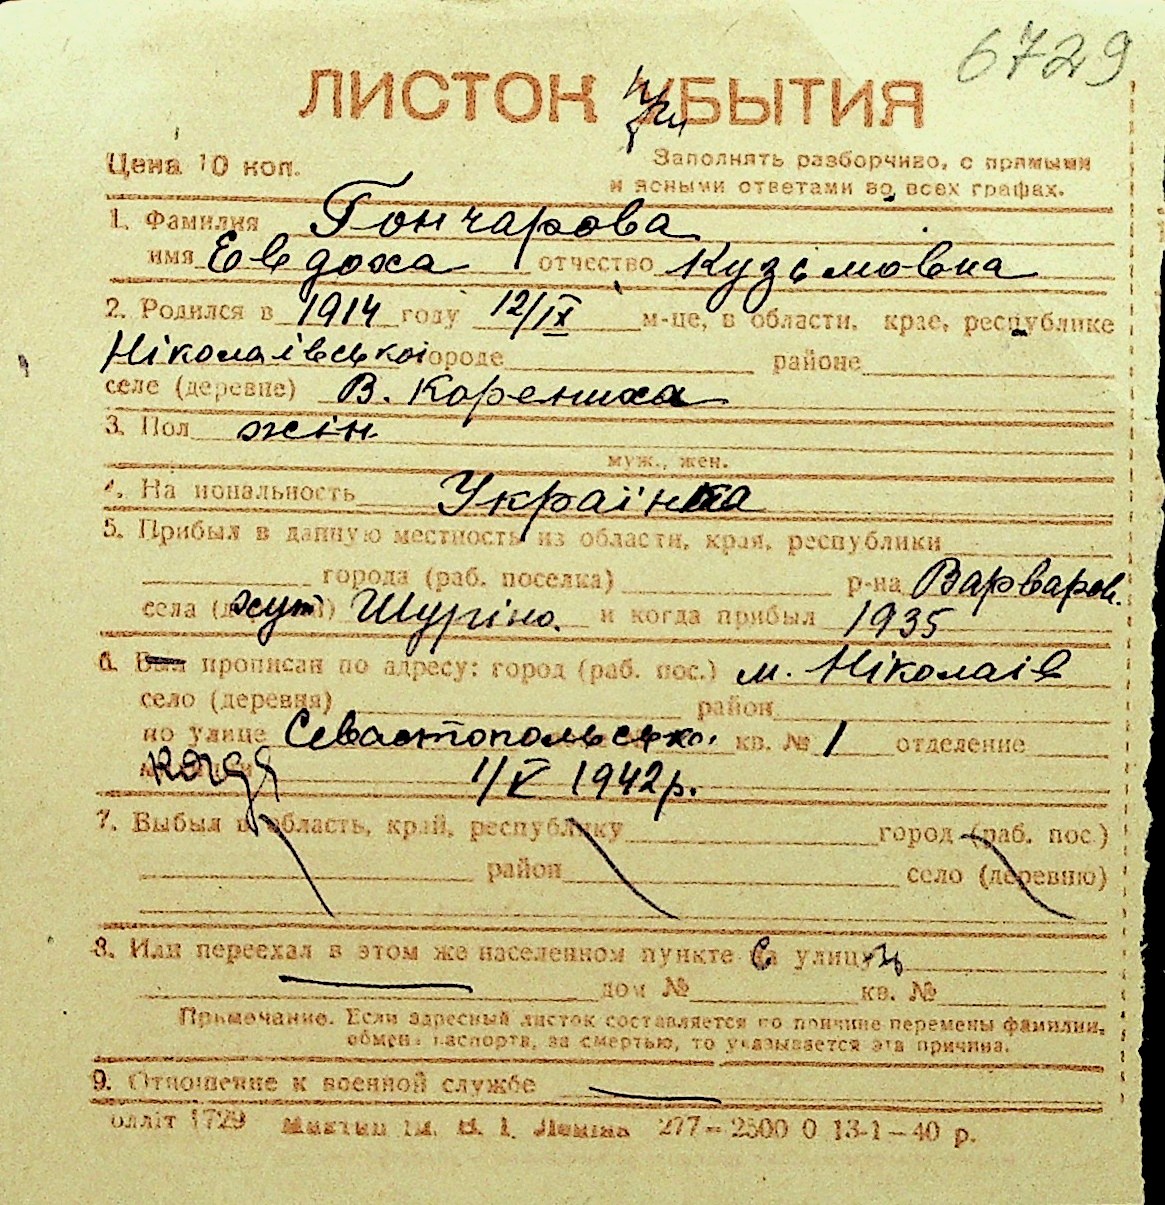 6729
ЛИСТОК УБЫТИЯ
Цена 10 коп.
Заполнять разборчиво, с прямыми
и ясными ответами во всех графах.
1. Фамилия Гончарова
имя Евдоха отчество Кузімовна
2. Родился в 1914 году 12/IX м-це, в области, крае, республике
Ніколаівської городе районе
селе (деревне) В. Корениха
3. Пол жін.
муж., жен.
4. На иональность Украінка
5. Прибыл в данную местность из области, края, республики
города (раб. поселка) р-на Варваров.
села хут Шуріно. и когда прибыл 1935
6. Был прописан по адресу: город (раб. пос.) м. Ніколаів
село (деревня) район
по улице Севастопольсько. кв. № 1 отделение
когда 1/V 1942 р.
7. Выбыл в область, край, республику город (раб. пос.)
район село (деревню)
8. Или переехал в этом же населенном пункте улицу
дом № кв. №
Примечание. Если адресный листок составляется по причине перемены фамилии,
обмена паспорта, за смертью, то указывается эта причина.
9. Отношение к военной службе
блліт 1729 ім. В. І. Леніна 277–2500 0 13-1–40 р.